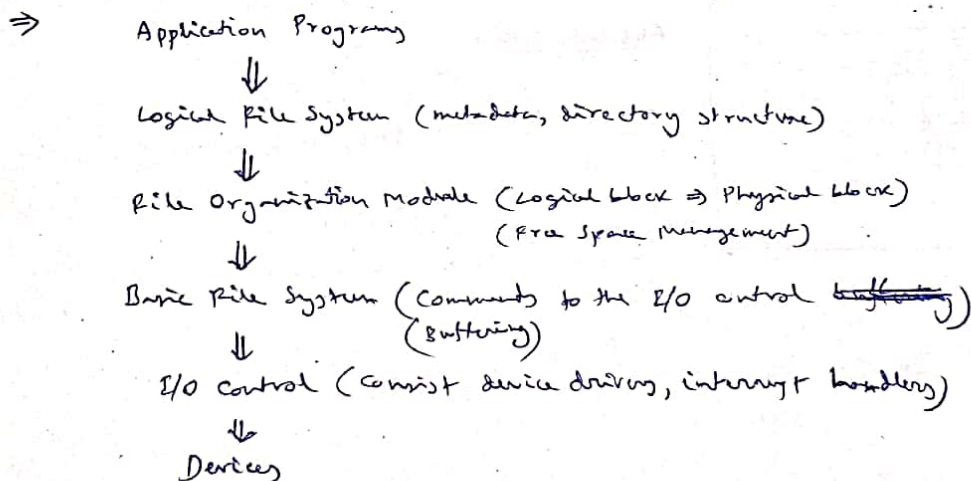 ⇒ Application Programs
⇓
Logical File System (metadata, directory structure)
⇓
File Organization Module (Logical block ⇒ Physical block)
(Free Space Management)
⇓
Basic File System (Commands to the I/O control)
(Buffering)
⇓
I/O control (consist device drivers, interrupt handlers)
⇓
Devices